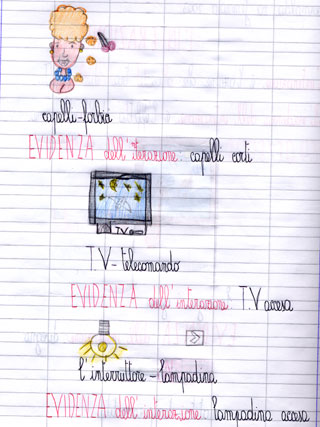 capelli-forbici
EVIDENZA dell'iterazione: capelli corti
TV
T.V - telecomando
EVIDENZA dell'interazione: T.V accesa
l'interruttore - lampadina
EVIDENZA dell'interazione: lampadina accesa